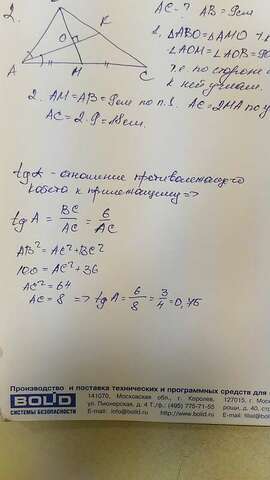 2.
AC-? AB=9см
1. △ABO=△AMO
∠AOM=∠AOB=90
т.е. по стороне и
к ней углам.
O
K
A
M
C
2. AM=AB=9см по п.1. AC=2MA по у
AC=2·9=18см.
tg α - отношение противолежащего
катета к прилежащему =>
tg A = BC/AC = 6/AC
AB²=AC²+BC²
100=AC²+36
AC²=64
AC=8 => tg A = 6/8 = 3/4 = 0,75
Производство и поставка технических и программных средств для
BOLID
СИСТЕМЫ БЕЗОПАСНОСТИ
141070, Московская обл., г. Королев,
ул. Пионерская, д. 4 Т./ф.: (495) 775-71-55
E-mail: info@bolid.ru http://www.bolid.ru
127015, г. Мо
рощи, д. 40, стр.
E-mail: